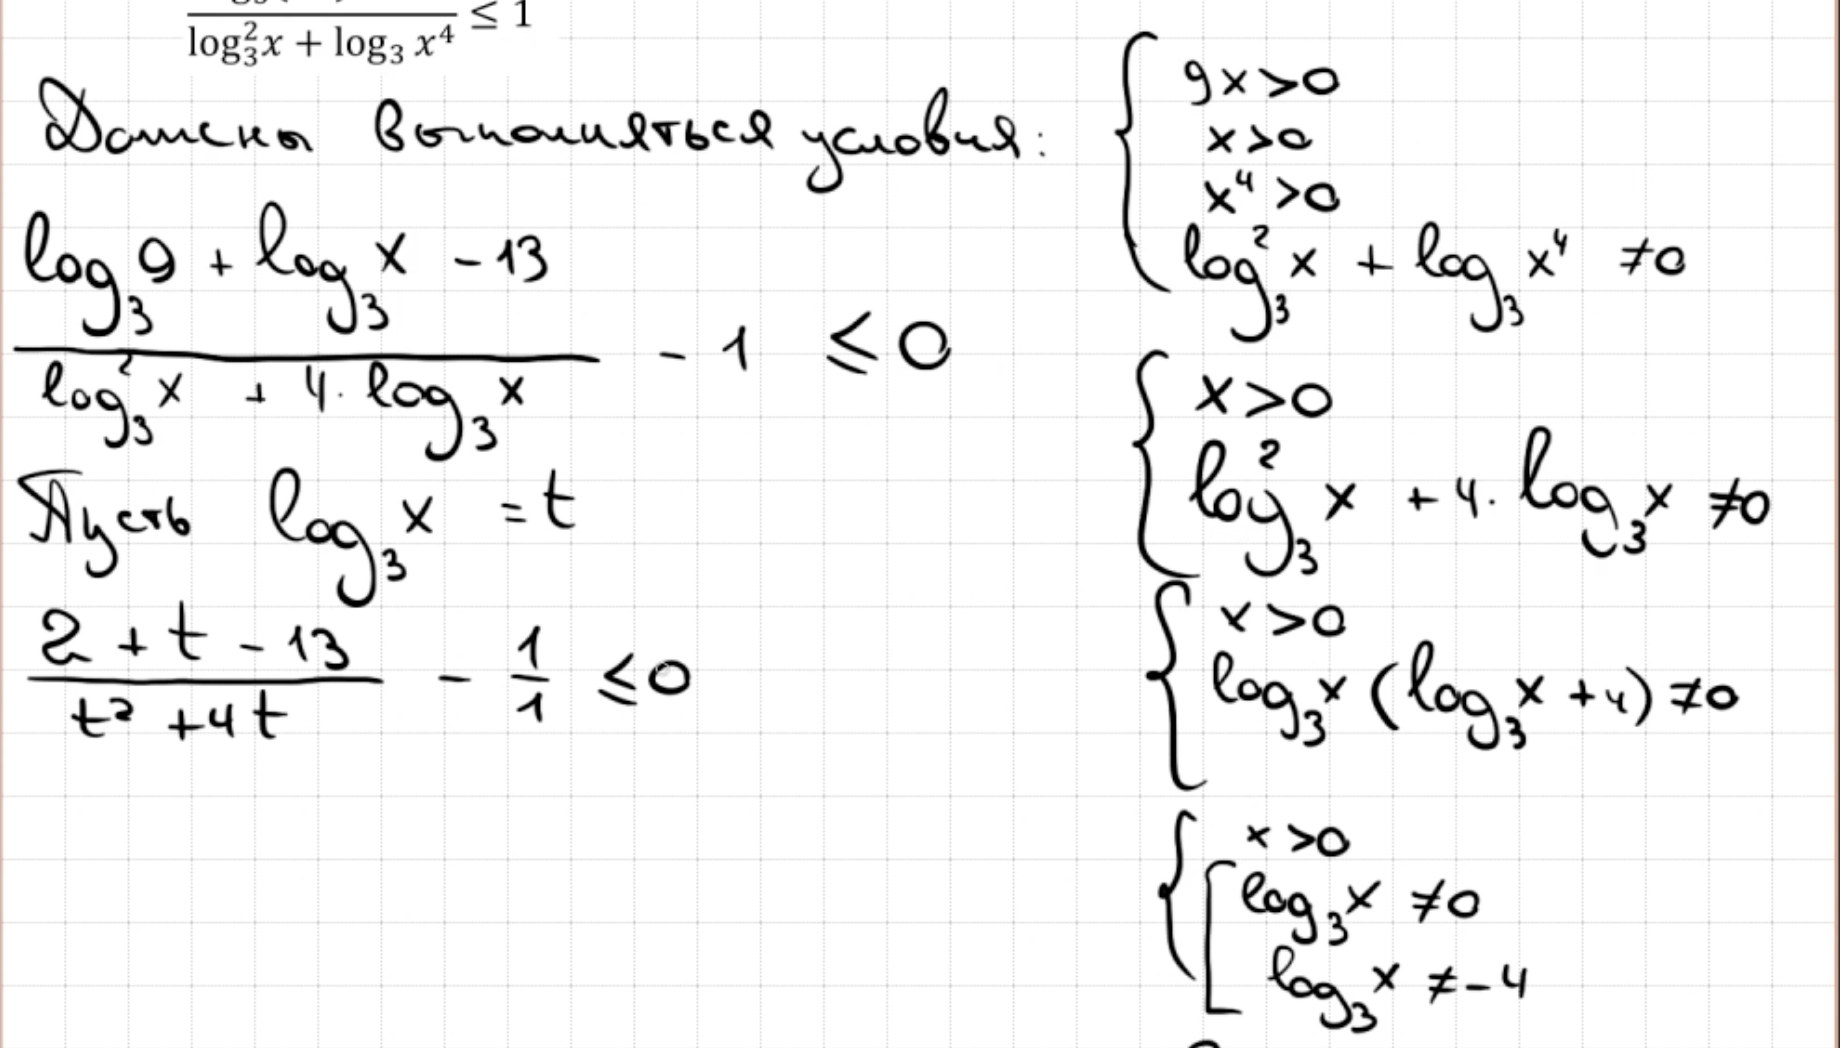 log₃²x + log₃ x⁴ ≤ 1
Должны выполняться условия:
log₃9 + log₃x - 13
log₃²x + 4·log₃x
- 1 ≤ 0
Пусть log₃x = t
2 + t - 13
t² + 4t
- 1/1 ≤ 0
9x > 0
x > 0
x⁴ > 0
log₃²x + log₃x⁴ ≠ 0
x > 0
log₃²x + 4·log₃x ≠ 0
x > 0
log₃x (log₃x + 4) ≠ 0
x > 0
log₃x ≠ 0
log₃x ≠ -4